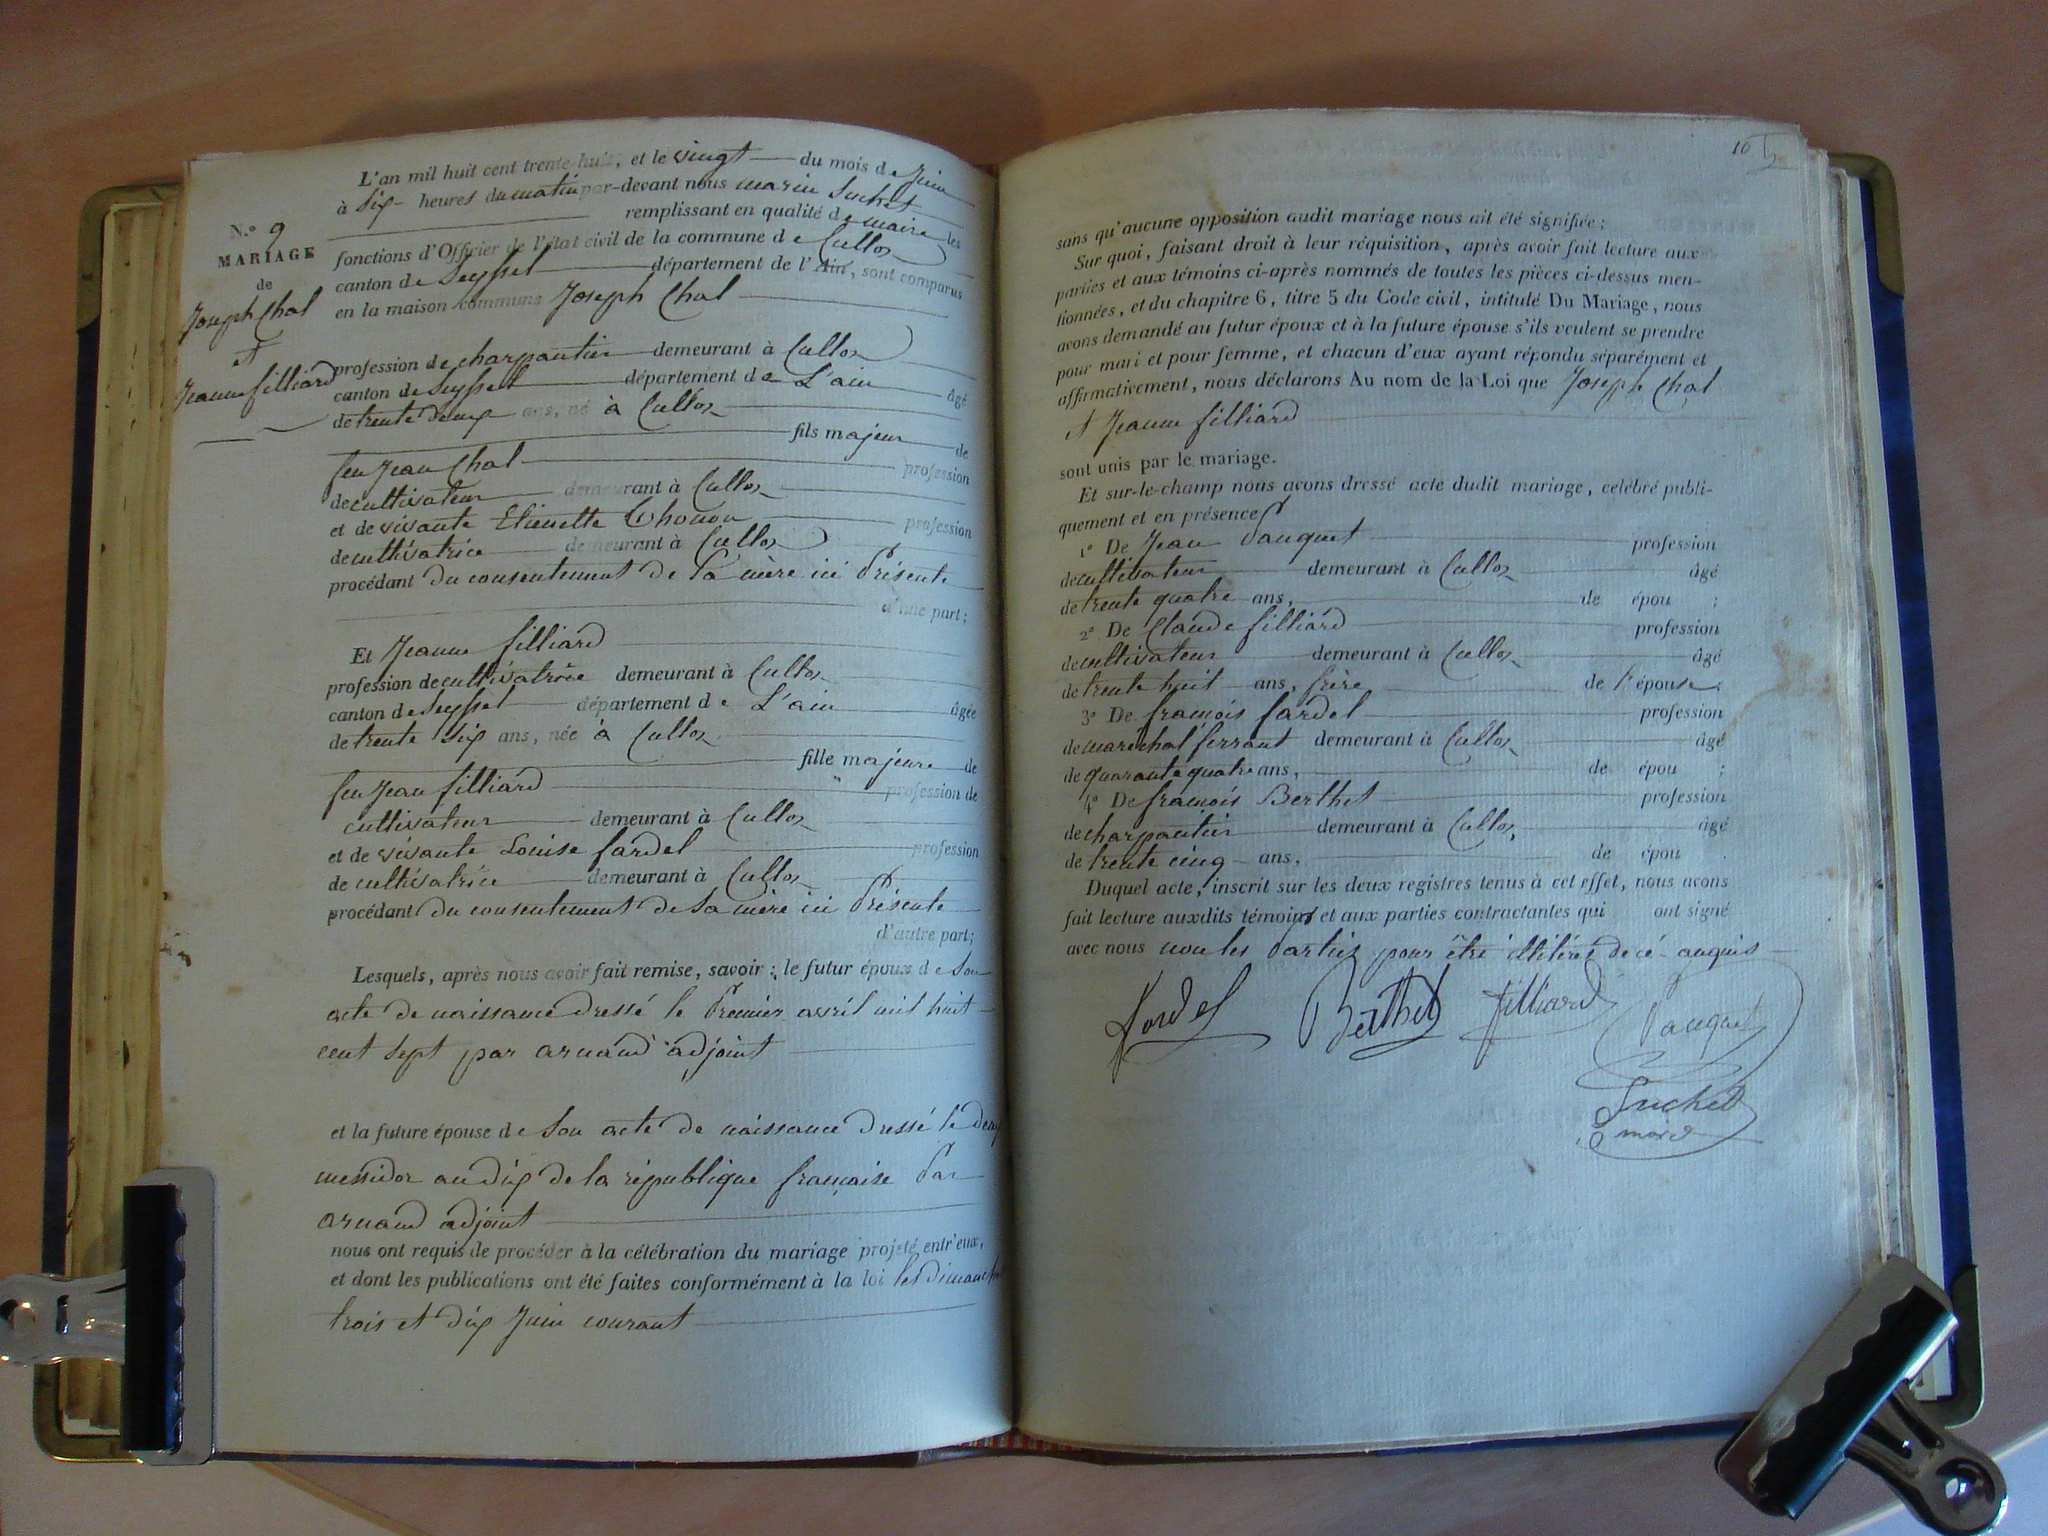 N.º 9
MARIAGE
de
Joseph Chal
et
Jeanne filliard
L'an mil huit cent trente-huit, et le vingt du mois de Juin
à six heures du matin par-devant nous marin Suchet
remplissant en qualité de maire les
fonctions d'Officier de l'état civil de la commune de Culloz
canton de Seyssel département de l'Ain, sont comparus
en la maison commune Joseph Chal
profession de charpantier demeurant à Culloz
canton de Seyssel département de L'ain âgé
de trente deux ans, né à Culloz
fils majeur de
feu Jean Chal profession
de cultivateur demeurant à Culloz
et de vivante Etiennette profession
de cultivatrice demeurant à Culloz
procédant du consentement de Sa mère ici Présente
d'une part;
Et Jeanne filliard
profession de cultivatrice demeurant à Culloz
canton de Seyssel département de L'ain âgée
de trente six ans, née à Culloz
fille majeure de
feu Jean filliard profession de
cultivateur demeurant à Culloz
et de vivante Louise fardel profession
de cultivatrice demeurant à Culloz
procédant du consentement de Sa mère ici Présente
d'autre part;
Lesquels, après nous avoir fait remise, savoir: le futur époux de Son
acte de naissance dressé le Premier avril mil huit
cent sept par arnaud adjoint
et la future épouse de Son acte de naissance dressé le deux
messidor an dix de la république française Par
arnaud adjoint
nous ont requis de procéder à la célébration du mariage projeté entr'eux,
et dont les publications ont été faites conformément à la loi les dimanches
trois et dix Juin courant
10
sans qu'aucune opposition audit mariage nous ait été signifiée;
Sur quoi, faisant droit à leur réquisition, après avoir fait lecture aux
parties et aux témoins ci-après nommés de toutes les pièces ci-dessus men-
tionnées, et du chapitre 6, titre 5 du Code civil, intitulé Du Mariage, nous
avons demandé au futur époux et à la future épouse s'ils veulent se prendre
pour mari et pour femme, et chacun d'eux ayant répondu séparément et
affirmativement, nous déclarons Au nom de la Loi que Joseph Chal
et Jeanne filliard
sont unis par le mariage.
Et sur-le-champ nous avons dressé acte dudit mariage, célébré publi-
quement et en présence
1º De Jean Pauquet profession
de cultivateur demeurant à Culloz âgé
de trente quatre ans, de épou ;
2º De Claude filliard profession
de cultivateur demeurant à Culloz âgé
de trente huit ans, frère de l'épouse;
3º De françois fardel profession
de marechal ferrant demeurant à Culloz âgé
de quarante quatre ans, de épou ;
4º De françois Berthet profession
de charpantier demeurant à Culloz, âgé
de trente cinq ans, de épou .
Duquel acte, inscrit sur les deux registres tenus à cet effet, nous avons
fait lecture auxdits témoins et aux parties contractantes qui ont signé
avec nous non les Parties pour être illitérés de cé anquis
fardel Berthet filliard Pauquet
Suchet
maire